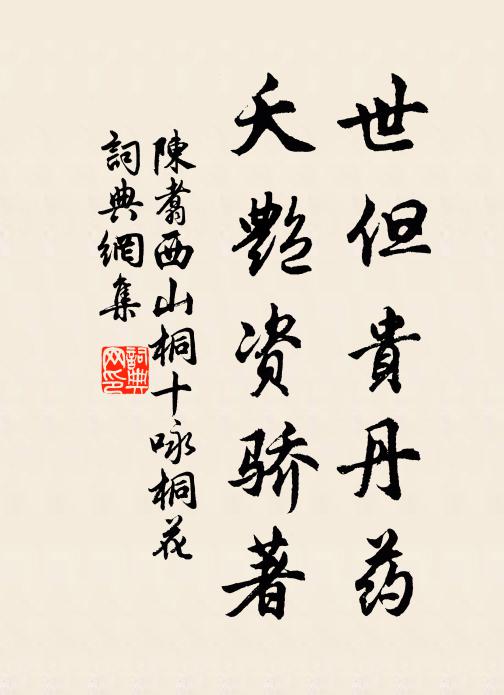 世但貴丹药
夭艷资骄著
陳翥西山桐十咏桐花
詞典網集
詞典
网印